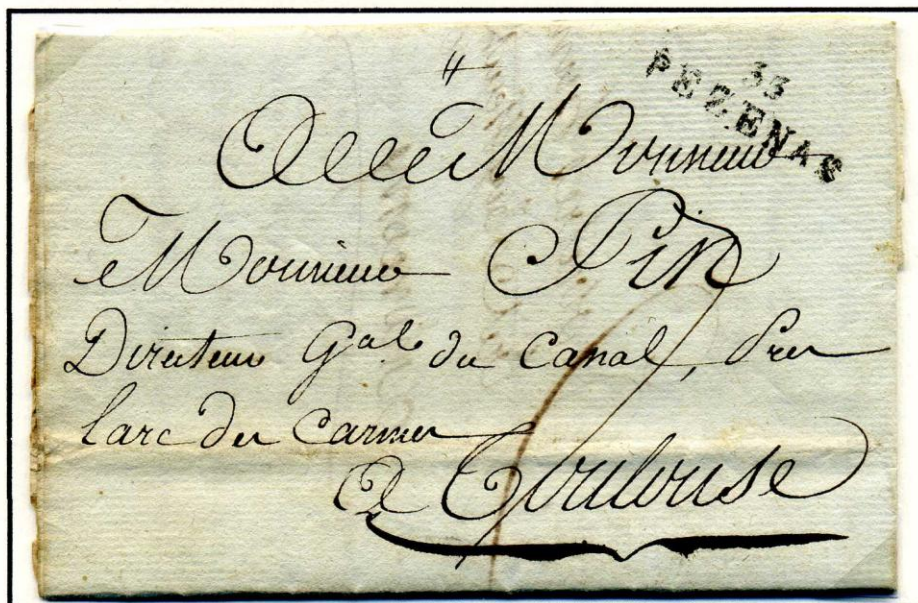 33
PEZENAS
A Monsieur
Monsieur Pin
Directeur Gal du Canal, Pres
larc des Carmes
A Toulouse